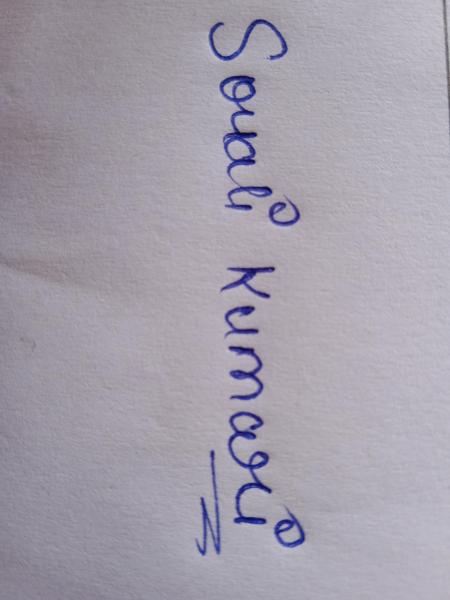 Sonali Kumari